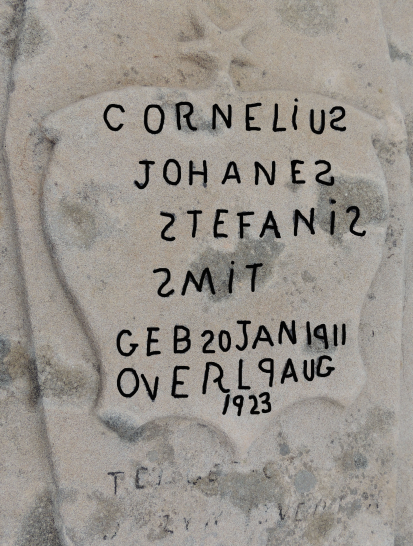 CORNELiUS
JOHANES
STEFANiS
SMiT
GEB 20 JAN 1911
OVERL 9 AUG
1923